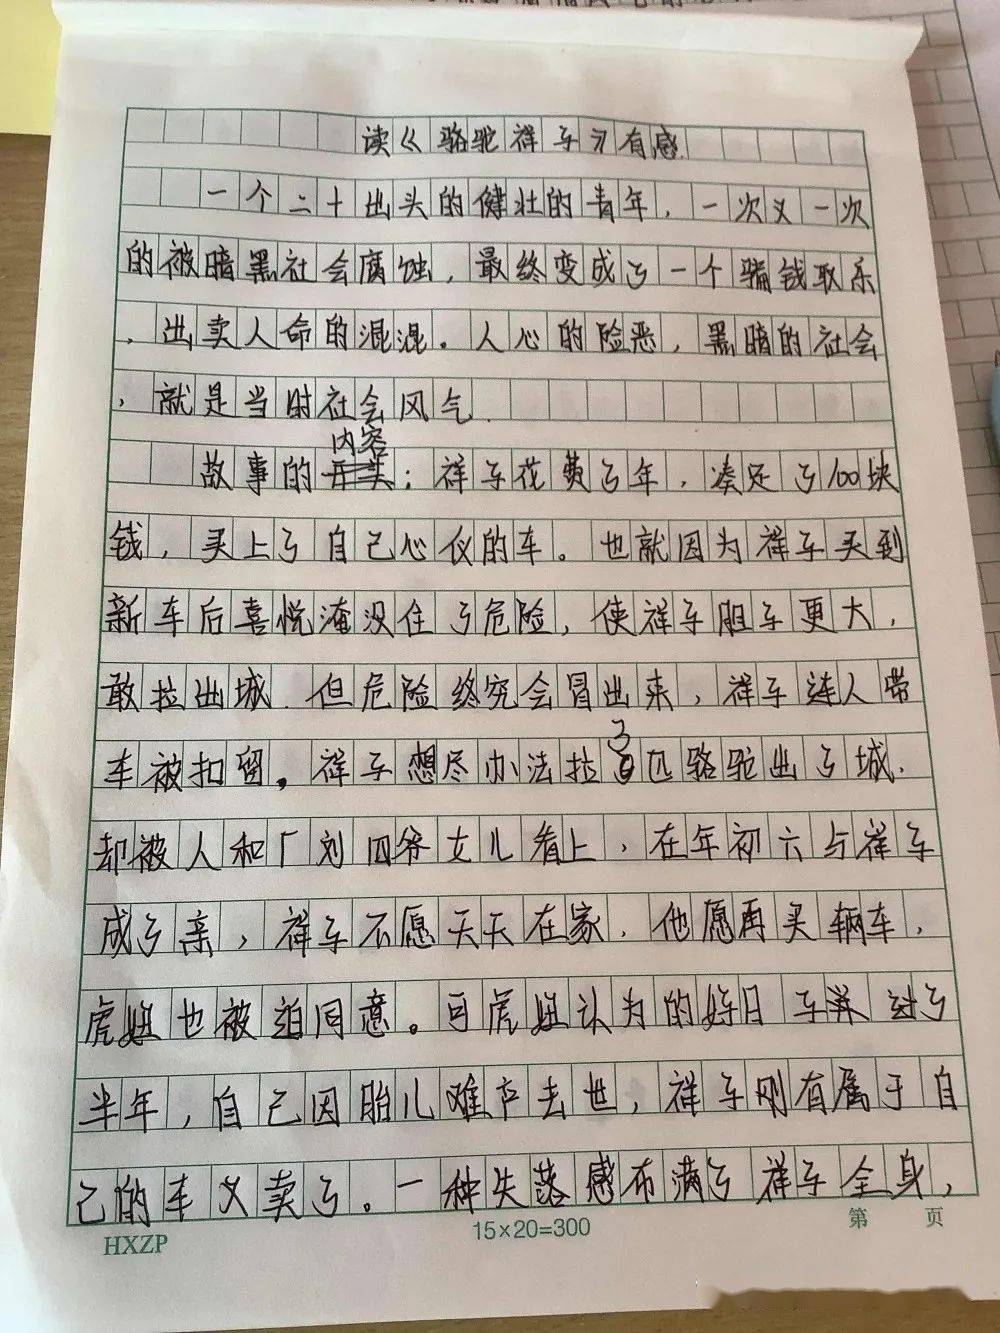 读《骆驼祥子》有感
一个二十出头的健壮的青年，一次又一次
的被暗黑社会腐蚀，最终变成了一个骗钱取乐
，出卖人命的混混。人心的险恶，黑暗的社会
，就是当时社会风气.
内容
故事的开类：祥子花费了年，凑足了100块
钱，买上了自己心仪的车。也就因为祥子买到
新车后喜悦淹没住了危险，使祥子胆子更大，
敢拉出城.但危险终究会冒出来，祥子连人带
车被扣留。祥子想尽办法拉3匹骆驼出了城.
却被人和厂刘四爷女儿看上，在年初六与祥子
成了亲，祥子不愿天天在家.他愿再买辆车，
虎妞也被迫同意。可虎妞认为的好日子 过了
半年，自己因胎儿难产去世，祥子刚有属于自
己的车又卖了。一种失落感布满了祥子全身，
HXZP
15×20=300
第 页